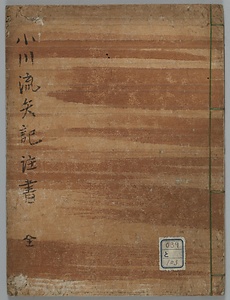 小川流矢記註書 全
039
と
123